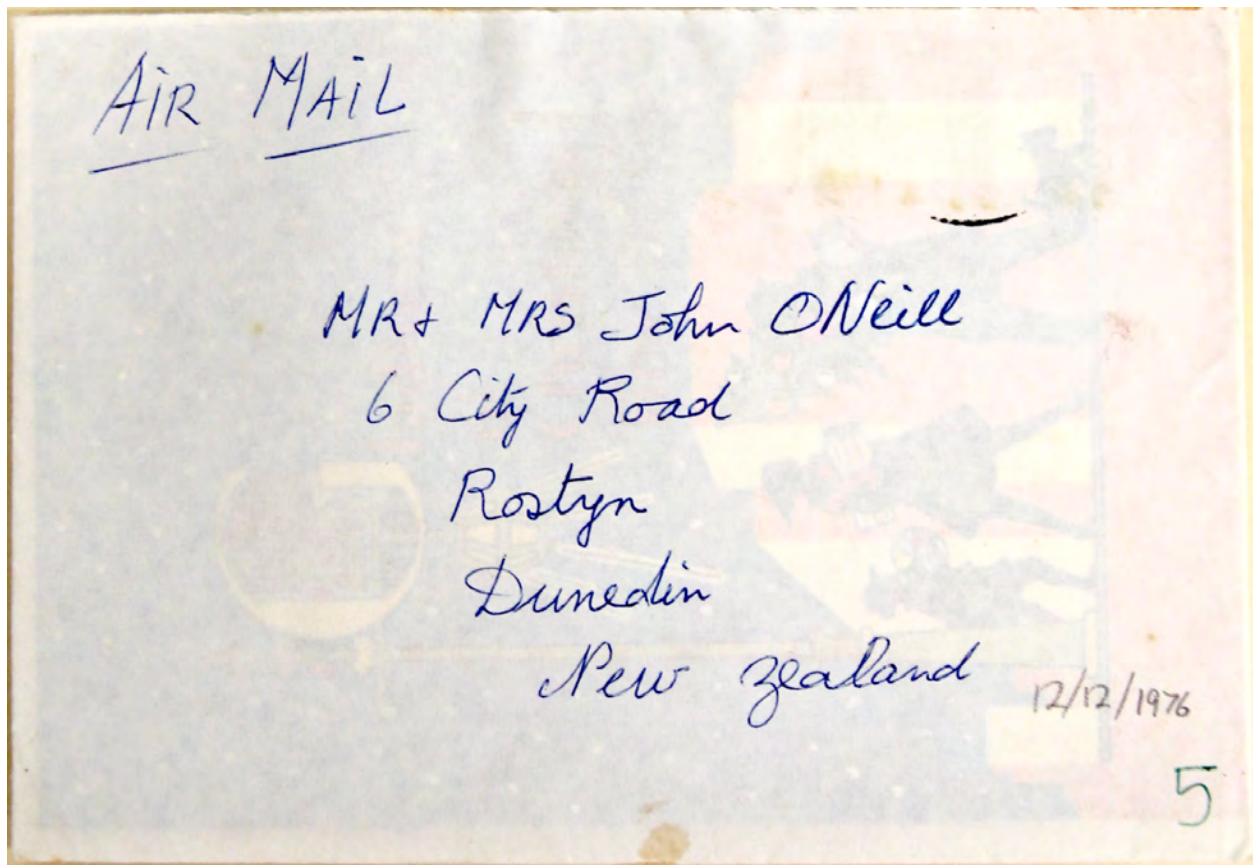 AiR MAiL
MR & MRS John ONeill
6 City Road
Rostyn
Dunedin
New Zealand
12/12/1976
5